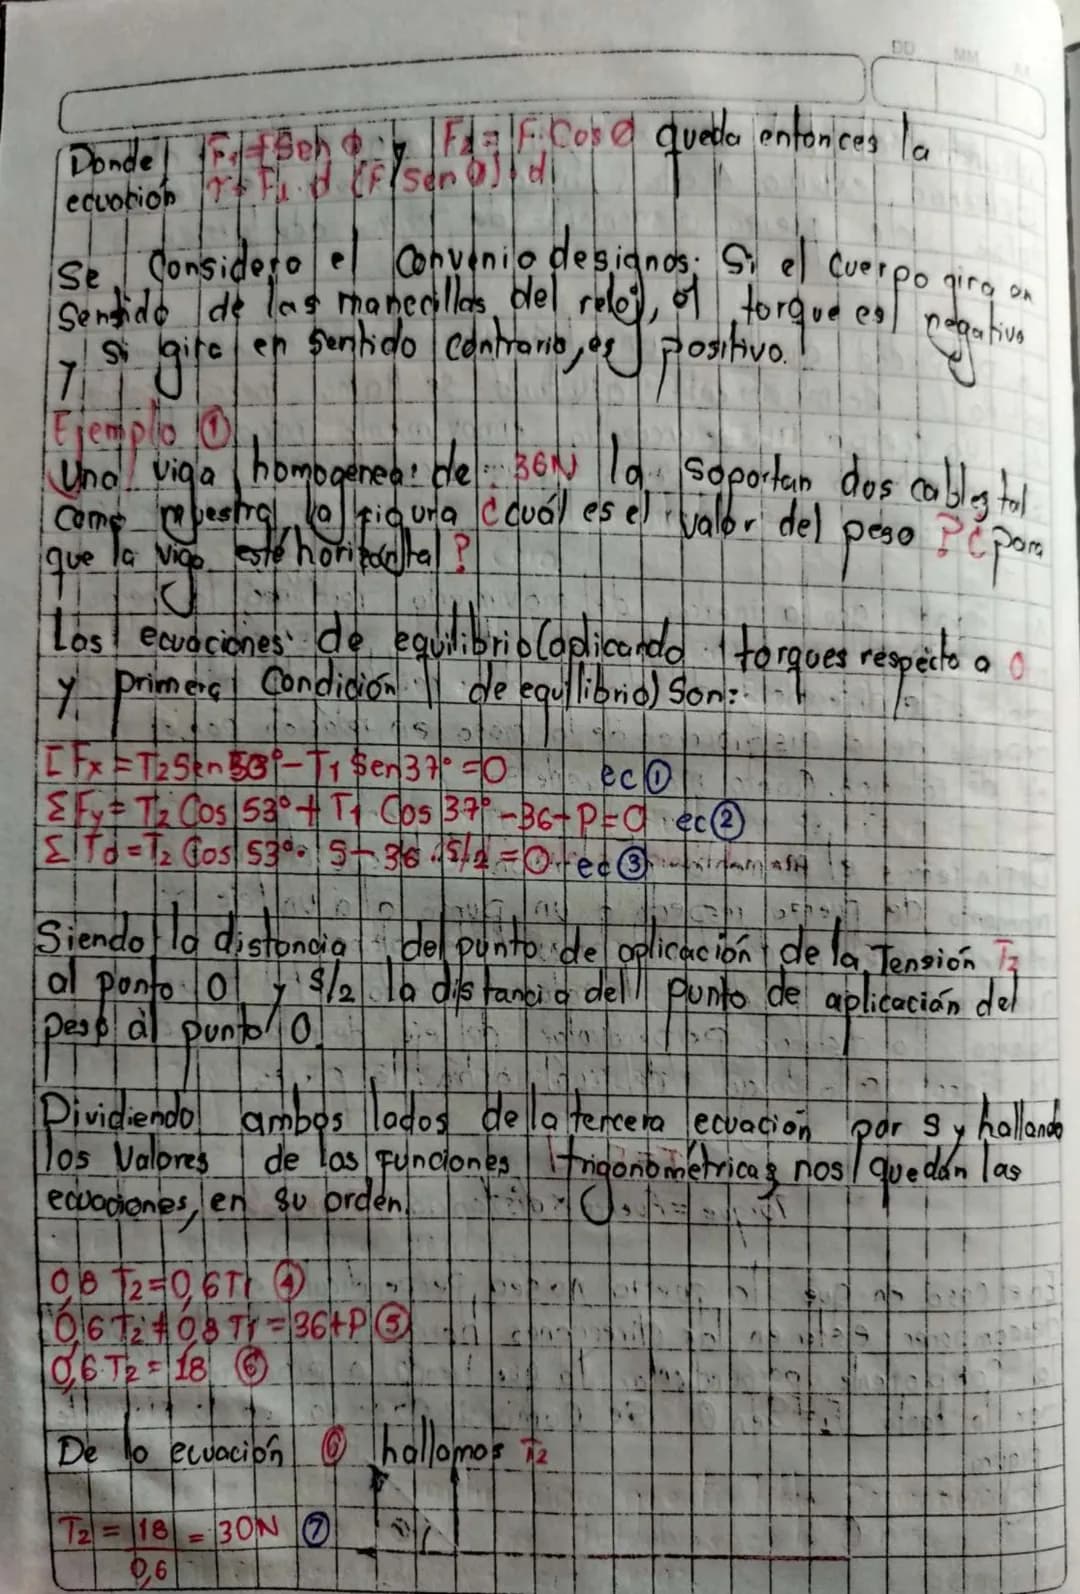 DD MM AA
Donde F₁=FSen Φ y F₂=F.CosØ queda entonces la
ecuación τ=F₁.d (F/Sen Ø).d
Se considera el convenio designos. Si el cuerpo gira en
Sentido de las manecillas del reloj, el torque es negativo
y si gira en Sentido contrario, es positivo.
Ejemplo ①
Una viga homogenea de 36N la soportan dos cables tal
como muestra la figura ¿cuál es el valor del peso P? para
que la viga esté horizontal?
Las ecuaciones de equilibrio (aplicando torques respecto a O
y primera Condición de equilibrio) Son:
ΣFx=T₂Sen 53°-T₁Sen37°=0 ec①
ΣFy=T₂ Cos 53°+T₁ Cos 37°-36-P=0 ec②
ΣTo=T₂ Cos 53°. S-36.S/2=0 ec③
Siendo la distancia del punto de aplicación de la Tensión T₂
al punto O y S/2 la distancia del punto de aplicación del
peso al punto O.
Dividiendo ambos lados de la tercera ecuación por S y hallando
los Valores de las Funciones trigonométricas nos quedan las
ecuaciones, en su orden.
0,8 T₂=0,6T₁ ④
0,6 T₂+0,8 T₁=36+P ⑤
0,6 T₂=18 ⑥
De la ecuación ⑥ hallamos T₂
T₂ = 18 = 30N ⑦
0,6